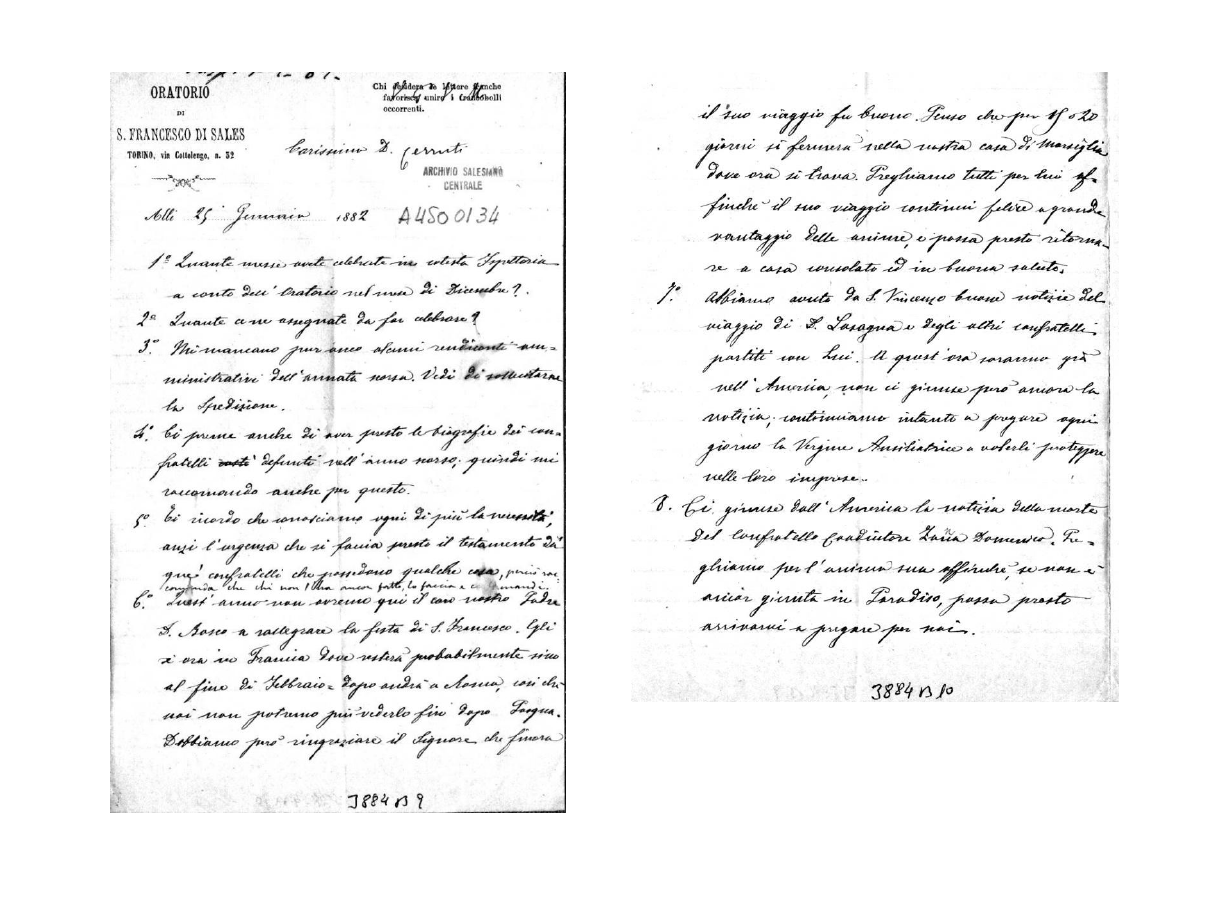 ORATORIO
DI
S. FRANCESCO DI SALES
TORINO, via Cottolengo, n. 32
Chi desidera le lettere franche
favorisca unire i francobolli
occorrenti.
Carissimo D. Cerruti
ARCHIVIO SALESIANO
CENTRALE
Alli 25 Gennaio 1882 A4500134
1° Quante messe avete celebrate in cotesta Ispettoria
a conto dell'Oratorio nel mese di Dicembre?
2° Quante ce ne assegnate da far celebrare?
3° Mi mancano pur anco alcuni rendiconti am-
ministrativi dell'annata scorsa. Vedi di sollecitarne
la spedizione.
4° Ci preme anche di aver presto le biografie dei con-
fratelli defunti nell'anno scorso; quindi mi
raccomando anche per questo.
5° Ti ricordo che conosciamo ogni dì più la necessità,
anzi l'urgenza che si faccia presto il testamento da
que' confratelli che possedono qualche cosa, perciò rac-
comanda che chi non l'ha ancor fatto, lo faccia e
6° Quest'anno non avremo qui il caro nostro Padre
D. Bosco a rallegrare la festa di S. Francesco. Egli
è ora in Francia dove resterà probabilmente sino
al fine di Febbraio = dopo andrà a Roma, così che
noi non potremo più vederlo fin dopo Pasqua.
Dobbiamo però ringraziare il Signore che finora
J884 B 9
il suo viaggio fu buono. Penso che per 15 o 20
giorni si fermerà nella nostra casa di Marsiglia
dove ora si trova. Preghiamo tutti per lui af-
finché il suo viaggio continui felice a grande
vantaggio delle anime, e possa presto ritorna-
re a casa consolato ed in buona salute.
7° Abbiamo avuto da S. Vincenzo buone notizie del
viaggio di D. Lasagna e degli altri confratelli
partiti con Lui. A quest'ora saranno già
nell'America, non ci giunse però ancora la
notizia; continuiamo intanto a pregare ogni
giorno la Vergine Ausiliatrice a volerli proteggere
nelle loro imprese.
8. Ci giunse dall'America la notizia della morte
del Confratello Coadiutore Zanìa Domenico. Pre-
ghiamo per l'anima sua affinché, se non è
ancor giunta in Paradiso, possa presto
arrivarvi a pregare per noi.
J884 B 10